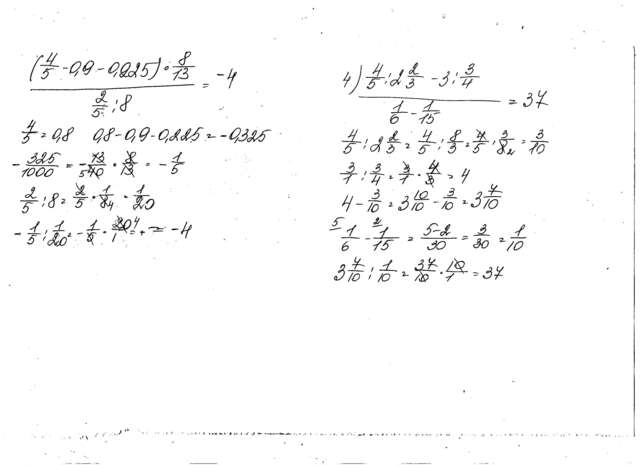 (4/5 - 0,9 - 0,225) · 8/13
2/5 : 8
= -4
4/5 = 0,8 0,8 - 0,9 - 0,225 = -0,325
- 325/1000 = - 13/40 · 8/13 = - 1/5
2/5 : 8 = 2/5 · 1/8 = 1/20
- 1/5 : 1/20 = - 1/5 · 20/1 = -4
4) 4/5 : 2 2/3 - 3 : 3/4
1/6 - 1/15
= 37
4/5 : 2 2/3 = 4/5 : 8/3 = 4/5 · 3/8 = 3/10
3/1 : 3/4 = 3/1 · 4/3 = 4
4 - 3/10 = 3 10/10 - 3/10 = 3 7/10
1/6 - 1/15 = 5-2/30 = 3/30 = 1/10
3 7/10 : 1/10 = 37/10 · 10/1 = 37